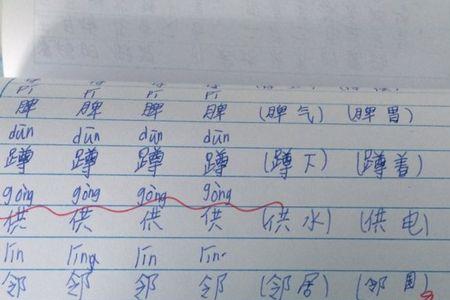 pí pí pí pí
脾 脾 脾 脾 (脾气) (脾胃)
dūn dūn dūn dūn
蹲 蹲 蹲 蹲 (蹲下) (蹲着)
gòng gòng gòng gòng
供 供 供 供 (供水) (供电)
lín líng lín lín
邻 邻 邻 邻 (邻居) (邻国)